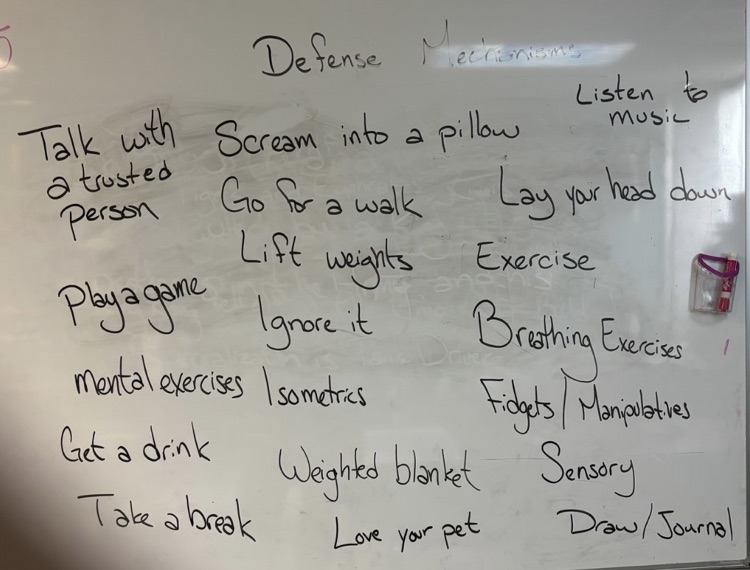 Defense Mechanisms
Listen to
music
Talk with
a trusted
person
Scream into a pillow
Go for a walk
Lay your head down
Lift weights
Exercise
Play a game
Ignore it
Breathing Exercises
mental exercises
Isometrics
Fidgets/Manipulatives
Get a drink
Weighted blanket
Sensory
Take a break
Love your pet
Draw/Journal